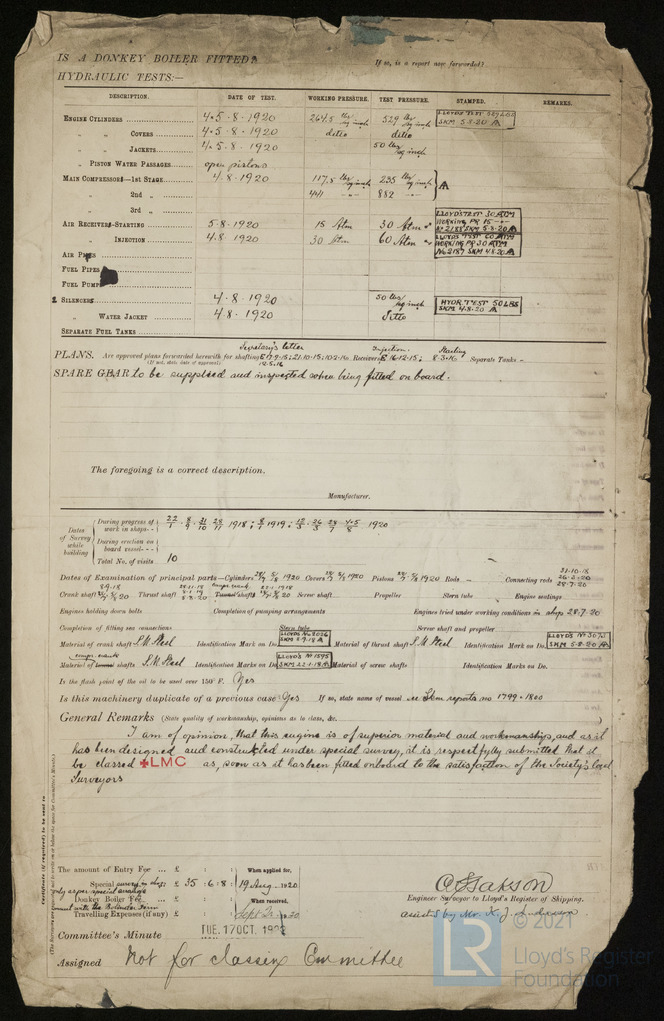 IS A DONKEY BOILER FITTED?
If so, is a report now forwarded?
HYDRAULIC TESTS:—
DESCRIPTION. DATE OF TEST. WORKING PRESSURE. TEST PRESSURE. STAMPED. REMARKS.
ENGINE CYLINDERS 4 & 5 - 8 - 1920 264.5 lbs sq inch 529 lbs sq inch LLOYDS TEST SKM 5.8.20
" " COVERS 4 & 5 - 8 - 1920 ditto ditto
" " JACKETS 4 & 5 - 8 - 1920 50 lbs sq inch
" PISTON WATER PASSAGES open pistons
MAIN COMPRESSORS—1st STAGE 4.8.1920 117.5 lbs sq inch 235 lbs sq inch
" " 2nd " 441 882
" " 3rd "
AIR RECEIVERS—STARTING 5.8.1920 15 Atm 30 Atm LLOYD'S TEST 30 ATM WORKING PR 15 No 2188 SKM 5.8.20
" INJECTION 4.8.1920 30 Atm 60 Atm LLOYDS TEST 60 ATM WORKING PR 30 ATM No 2187 SKM 4.8.20
AIR PIPES
FUEL PIPES
FUEL PUMPS
SILENCERS 4.8.1920 50 lbs sq inch HYDR. TEST 50 LBS SKM 4.8.20
" WATER JACKET 4.8.1920 Ditto
SEPARATE FUEL TANKS
Secretary's letter Injection Starting
PLANS. Are approved plans forwarded herewith for shafting E 17-9-15; 21-10-15; 10-2-16 Receivers E 16-12-15; 8-3-16 Separate Tanks -
(If not, state date of approval) 12.5.16
SPARE GEAR to be supplied and inspected when being fitted on board.
The foregoing is a correct description.
Manufacturer.
Dates of Survey while building
During progress of work in shops-- 1918; 1919; 1920
During erection on board vessel---
Total No. of visits 10
Dates of Examination of principal parts—Cylinders 1920 Covers 1920 Pistons 1920 Rods - Connecting rods 31.10.18 26.3.20 28.7.20
Crank shaft Thrust shaft Screw shaft Propeller Stern tube Engine seatings
Engines holding down bolts Completion of pumping arrangements Engines tried under working conditions in shop 28.7.20
Completion of fitting sea connections Stern tube Screw shaft and propeller
Material of crank shaft S.M. Steel Identification Mark on Do. LLOYDS No 8026 SKM 5.9.18 Material of thrust shaft S.M. Steel Identification Mark on Do. LLOYD'S No 3075 SKM 5.8.20
Material of shafts S.M. Steel Identification Marks on Do. LLOYD'S No 1595 SKM 22.1.18 Material of screw shafts Identification Marks on Do.
Is the flash point of the oil to be used over 150° F. Yes
Is this machinery duplicate of a previous case Yes If so, state name of vessel see Skm reports no 1799 & 1800
General Remarks (State quality of workmanship, opinions as to class, &c.
I am of opinion, that this engine is of superior material and workmanship, and as it
has been designed and constructed under special survey, it is respectfully submitted that it
be classed ✠LMC as soon as it has been fitted onboard to the satisfaction of the Society's local
Surveyors
Certificate (if required) to be sent to
(The Surveyors are requested not to write on or below the space for Committee's Minute.)
The amount of Entry Fee ... £ : : When applied for,
Special survey in shop £ 35 : 6 : 8 : 19 Aug. 1920
only as per special arrange
Donkey Boiler Fee ... £ : : When received,
ment with the Bolinder Firm
Travelling Expenses (if any) £ : : Sept 20
Engineer Surveyor to Lloyd's Register of Shipping.
assisted by Mr. K. J.
Committee's Minute TUE. 17 OCT. 1922
Assigned Not for classing Committee
LR
© 2021
Lloyd's Register
Foundation